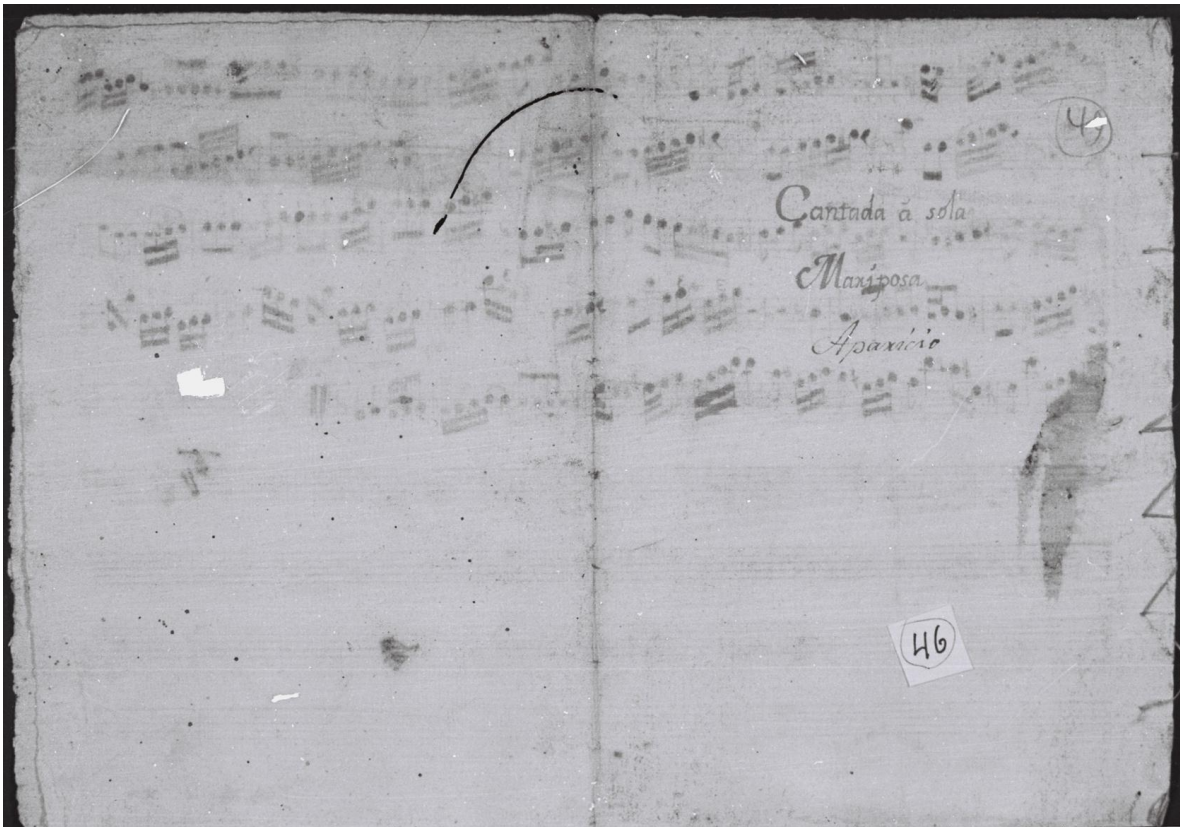 Cantada â sola
Mariposa
Aparicio
46